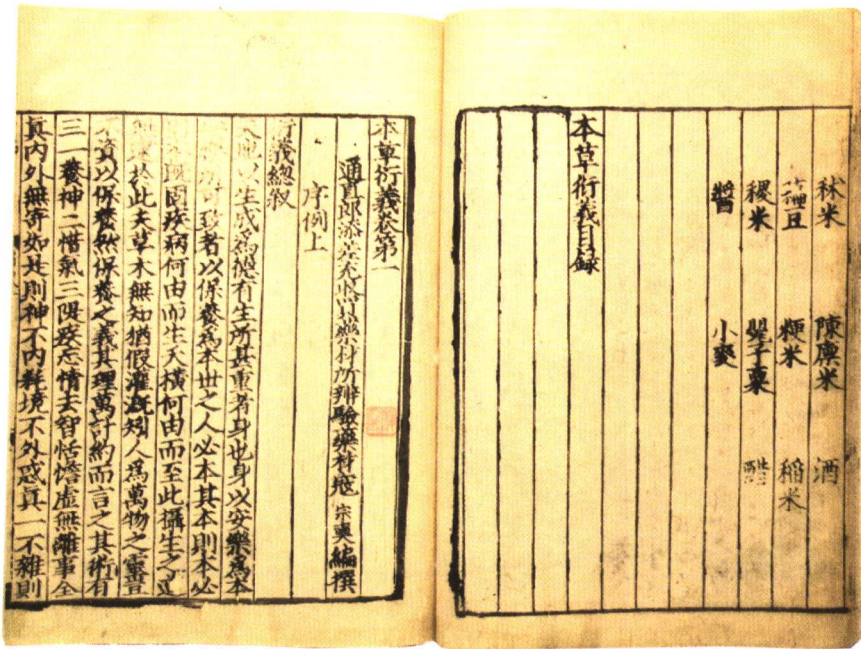 秫米 陳廩米 酒
豆 粳米 稻米
稷米 罌子粟
醬 小麥
本草衍義目録
本草衍義卷第一
通直郎添差充收買藥材所辨驗藥材寇宗奭編撰
序例上
衍義總敘
天地以生成爲德有生所甚重者身也身以安樂爲本
所可致者以保養爲本世之人必本其本則本必
既固疾病何由而生夭橫何由而至此攝生之道
於此夫草木無知猶假灌溉矧人爲萬物之靈豈
不資以保養然保養之義其理萬計約而言之其術有
三一養神二惜氣三隄疾忘情去智恬憺虛無離事全
眞内外無寄如是則神不内耗境不外惑真一不雜則